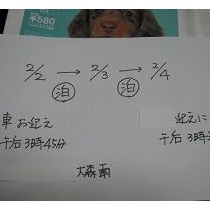 ¥580
2/2 → 2/3 → 2/4
泊 泊
車お迎え
午后3時45分
迎えに
午后3時
大森南